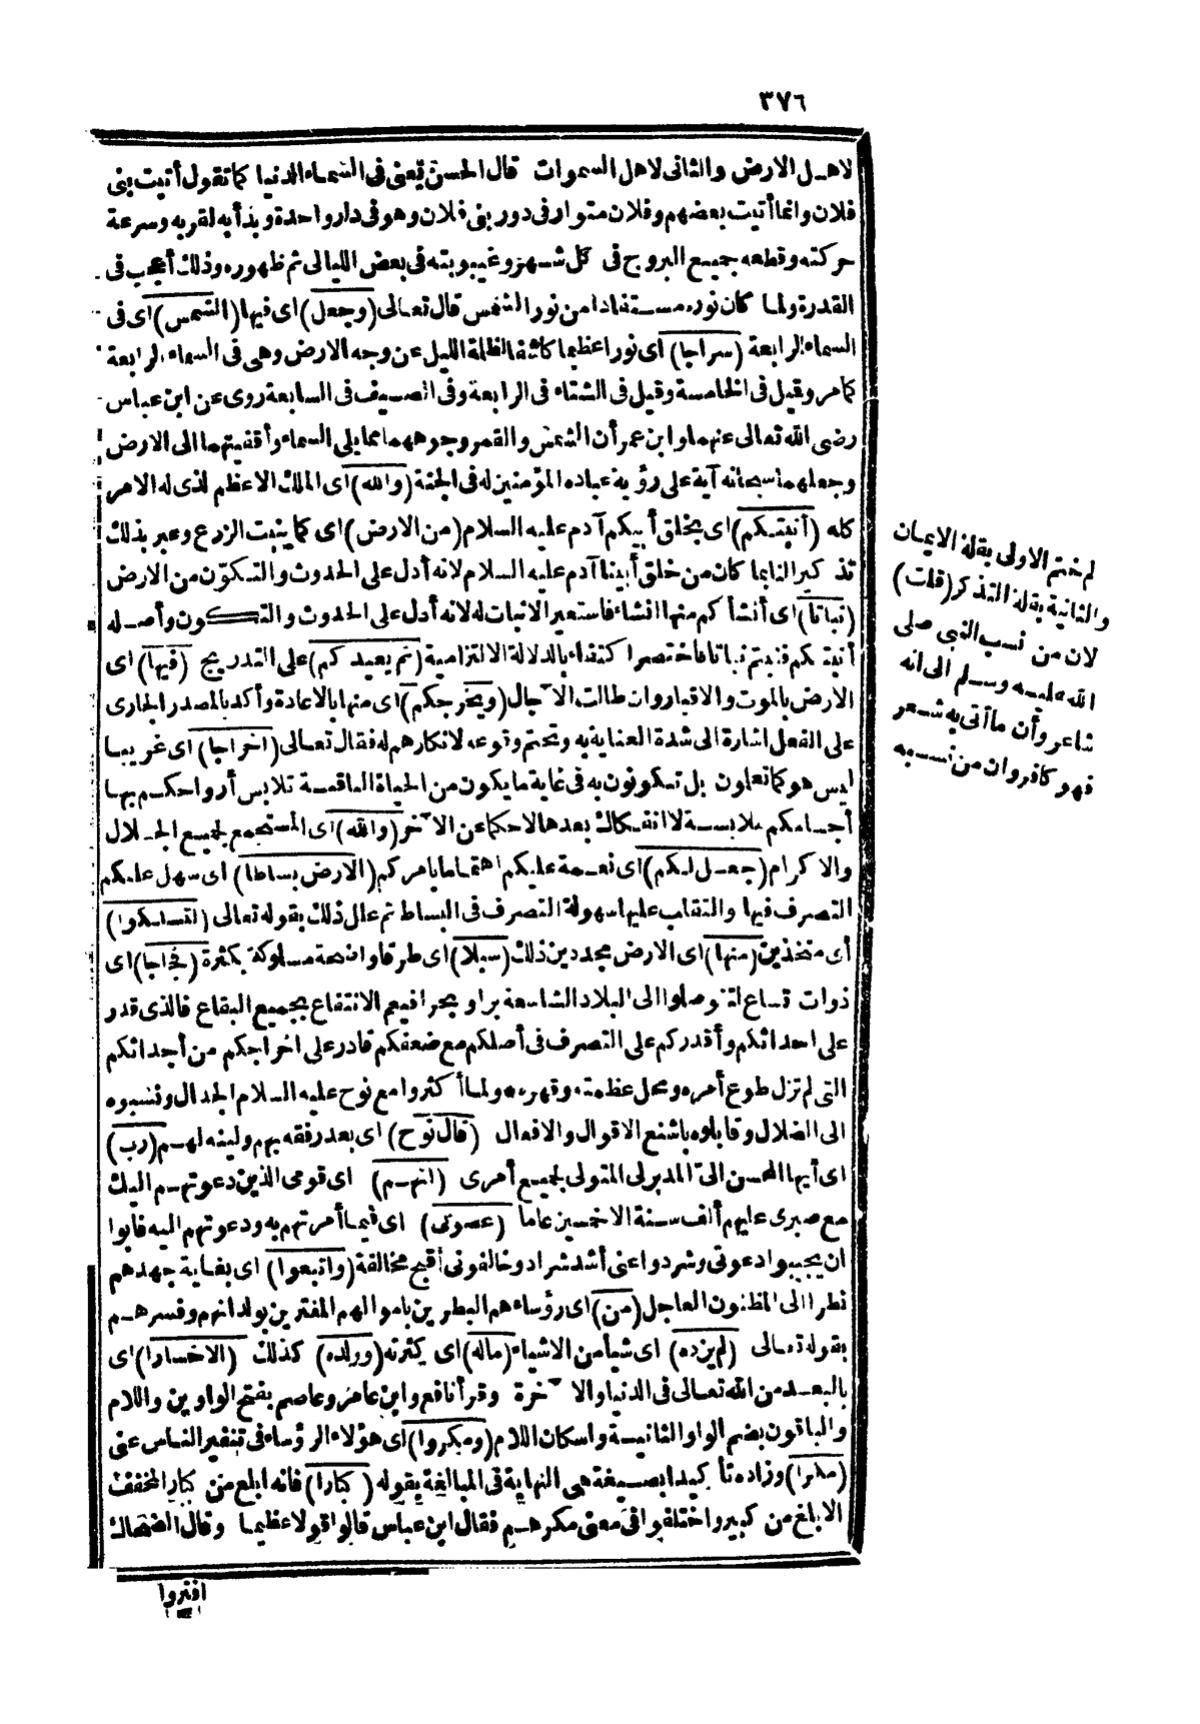 ٣٧٦
لاهل الارض والثانى لاهل السموات قال الحسن يعنى فى السماء الدنيا كما تقول أتيت بنى
فلان وانما أتيت بعضهم وفلان متوار فى دور بنى فلان وهو فى دار واحدة وبدأ به لقربه وسرعة
حركته وقطعه جميع البروج فى كل شهر وغيبوبته فى بعض الليالى ثم ظهوره وذلك أعجب فى
القدرة ولما كان نوره مستفادا من نور الشمس قال تعالى (وجعل) اى فيها (الشمس) اى فى
السماء الرابعة (سراجا) اى نورا عظيما كاشفا لظلمة الليل عن وجه الارض وهى فى السماء الرابعة
كما مر وقيل فى الخامسة وقيل فى الشتاء فى الرابعة وفى الصيف فى السابعة روى عن ابن عباس
رضى الله تعالى عنهما وابن عمر أن الشمس والقمر وجوههما مما يلى السماء وأقفيتهما الى الارض
وجعلهما سبحانه آية على رؤية عباده المؤمنين له فى الجنة (والله) اى الملك الاعظم لذى له الامر
كله (أنبتكم) اى بخلق أبيكم آدم عليه السلام (من الارض) اى كما ينبت الزرع وعبر بذلك
تذكيرا لنا بما كان من خلق أبينا آدم عليه السلام لانه أدل على الحدوث والتكوّن من الارض
(نباتا) اى أنشأكم منها انشاء فاستعير الانبات له لانه أدل على الحدوث والتكون وأصله
أنبتكم فنبتم نباتا فاختصر اكتفاء بالدلالة الالتزامية (ثم يعيدكم) على التدريج (فيها) اى
الارض بالموت والاقبار وان طالت الآجال (ويخرجكم) اى منها بالاعادة وأكد بالمصدر الجارى
على الفعل اشارة الى شدة العناية به وتحتم وقوعه لانكارهم له فقال تعالى (اخراجا) اى غريبا
ليس هو كما تعلون بل تكونون به فى غاية ما يكون من الحياة الباقية تلابس أرواحكم بها
أجسامكم ملابسة لا انفكاك بعدها لاحكما عن الآخر (والله) اى المستجمع لجميع الجلال
والاكرام (جعل لكم) اى نعمة عليكم اهتماما بامركم (الارض بساطا) اى سهل عليكم
التصرف فيها والتقلب عليها سهولة التصرف فى البساط ثم علل ذلك بقوله تعالى (لتسلكوا)
أى متخذين (منها) اى الارض مجددين ذلك (سبلا) اى طرقا واضحة مسلوكة بكثرة (فجاجا) اى
ذوات اتساع لتتوصلوا الى البلاد الشاسعة برا وبحرا فيعم الانتفاع بجميع البقاع فالذى قدر
على احداثكم وأقدركم على التصرف فى أصلكم مع ضعفكم قادر على اخراجكم من أجداثكم
التى لم تزل طوع أمره ومحل عظمته وقهره ولما أكثروا مع نوح عليه السلام الجدال ونسبوه
الى الضلال وقابلوه باشنع الاقوال والافعال (قال نوح) اى بعد رفقه بهم ولينه لهم (رب)
اى أيها المحسن الىّ المدبر لى المتولى لجميع أمرى (انهم) اى قومى الذين دعوتهم اليك
مع صبرى عليهم ألف سنة الا خمسين عاما (عصونى) اى فيما أمرتهم به ودعوتهم اليه فابوا
ان يجيبوا دعوتى وشردوا عنى أشد شراد وخالفونى أقبح مخالفة (واتبعوا) اى بغاية جهدهم
نظرا الى المظنون العاجل (من) اى رؤساءهم البطرين باموالهم المغترين بولدانهم وفسرهم
بقوله تعالى (لم يزده) اى شيأ من الاشياء (ماله) اى كثرته (وولده) كذلك (الا خسارا) اى
بالبعد من الله تعالى فى الدنيا والآخرة وقرأ نافع وابن عامر وعاصم بفتح الواوين واللام
والباقون بضم الواو الثانية واسكان اللام (ومكروا) اى هؤلاء الرؤساء فى تنفير الناس عنى
(مكرا) وزاده تأكيدا بصيغة هى النهاية فى المبالغة بقوله (كبارا) فانه ابلغ من كبار المخفف
الابلغ من كبير واختلفوا فى معنى مكرهم فقال ابن عباس قالوا قولا عظيما وقال الضحاك
افتروا
لم ختم الاولى بقلة الايمان
والثانية بقلة التذكر (قلت)
لان من نسب النبى صلى
الله عليه وسلم الى انه
شاعر وأن ما أتى به شعر
فهو كافر وان من نسبه